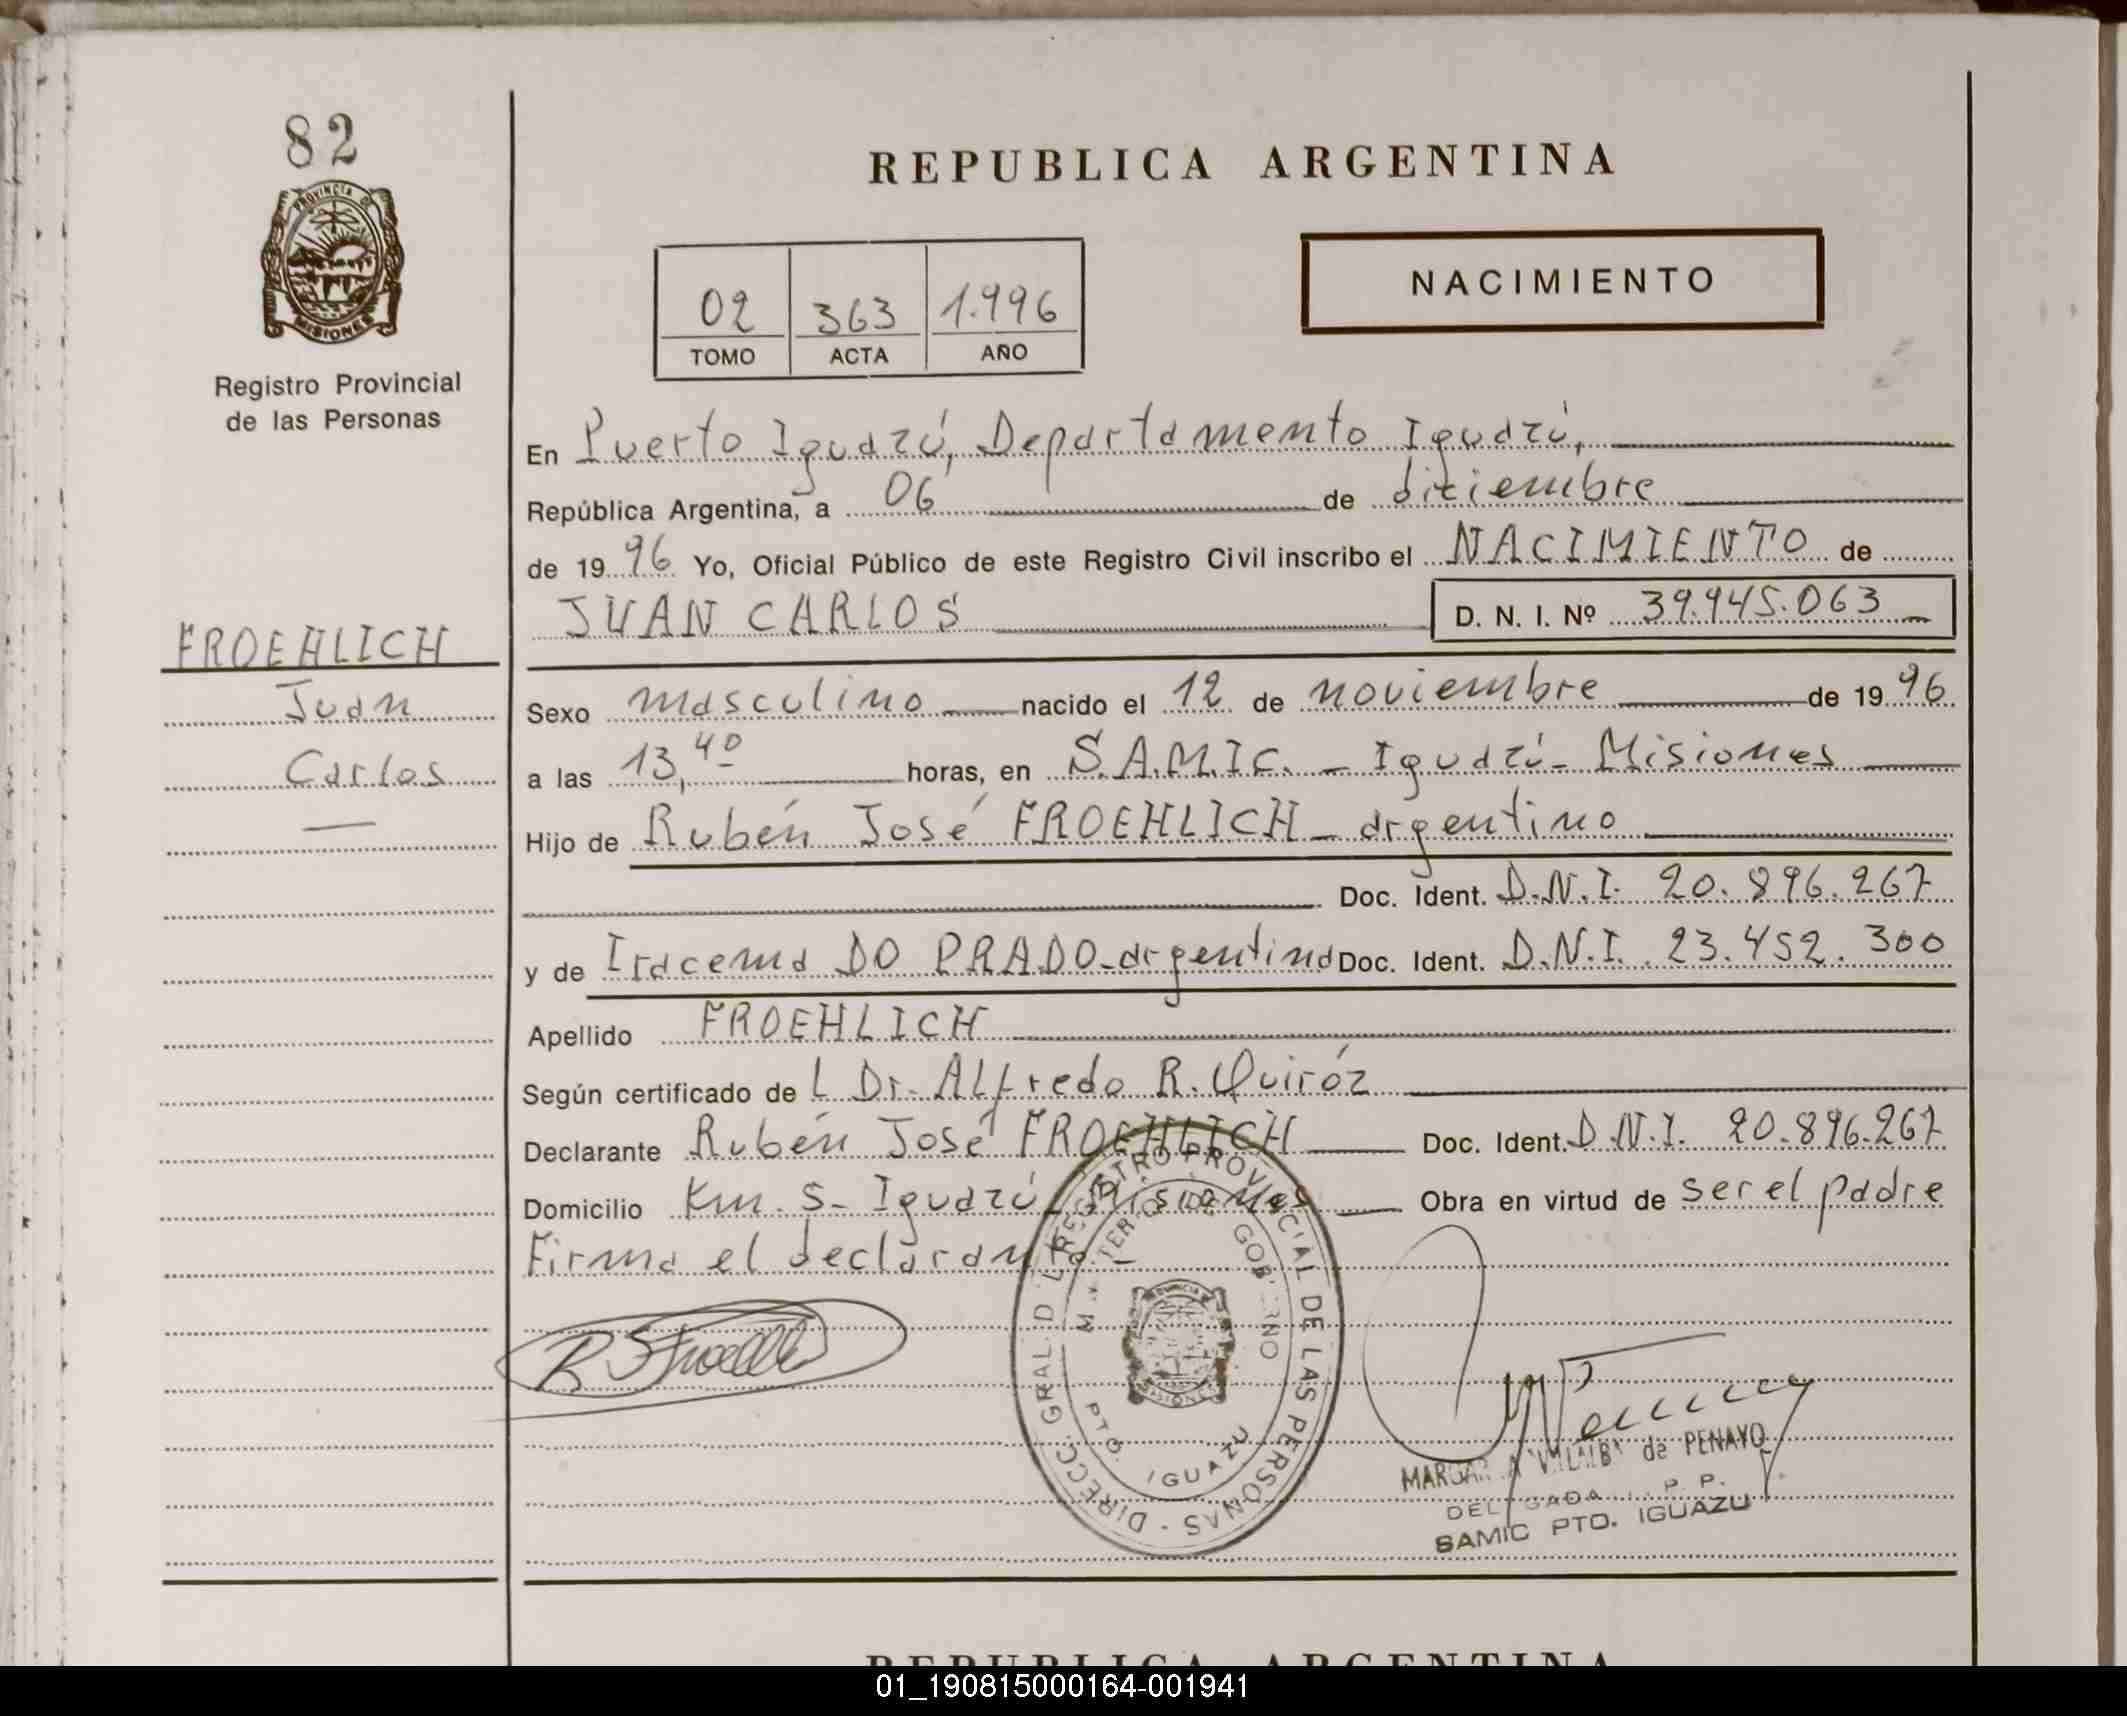 82
PROVINCIA DE
MISIONES
Registro Provincial
de las Personas
FROEHLICH
Juan
Carlos
—
REPUBLICA ARGENTINA
NACIMIENTO
02 363 1.996
TOMO ACTA AÑO
En Puerto Iguazú, Departamento Iguazú,
República Argentina, a 06 de diciembre
de 1996 Yo, Oficial Público de este Registro Civil inscribo el NACIMIENTO de
JUAN CARLOS D. N. I. Nº 39.945.063 —
Sexo masculino — nacido el 12 de noviembre de 1996
a las 13,40 horas, en S.A.M.I.C. — Iguazú - Misiones
Hijo de Rubén José FROEHLICH — argentino
Doc. Ident. D.N.I. 20.896.267
y de Iracema DO PRADO - argentina Doc. Ident. D.N.I. 23.452.300
Apellido FROEHLICH
Según certificado de L Dr. ALfredo R. Quiróz
Declarante Rubén José FROEHLICH Doc. Ident. D.N.I. 20.896.267
Domicilio Km. 5 - Iguazú - Misiones Obra en virtud de ser el padre
Firma el declarante —
DIRECC. GRAL. D L REGISTRO PROVINCIAL DE LAS PERSONAS
MINISTERIO DE GOBIERNO
MISIONES
PTO. IGUAZU
MARGARITA VILLALBA de PENAYO
DELEGADA P. P.
SAMIC PTO. IGUAZU
REPUBLICA ARGENTINA
01_190815000164-001941